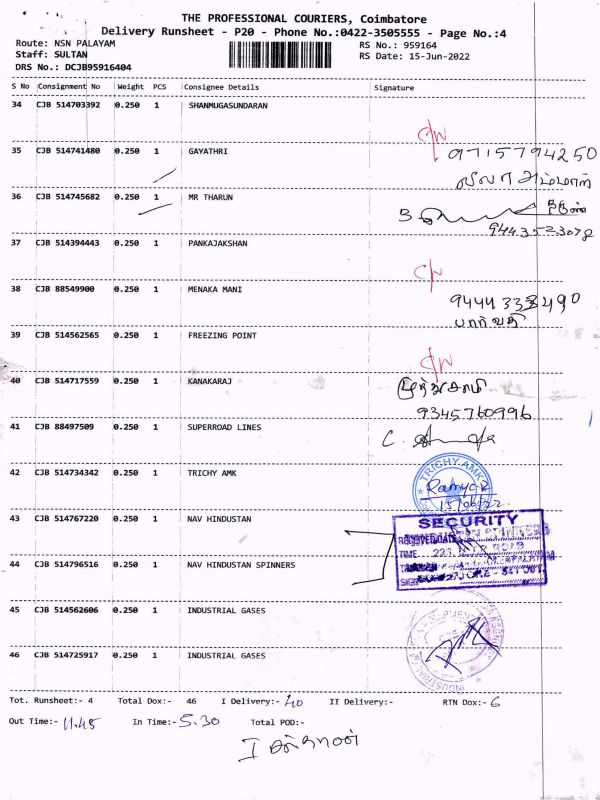 THE PROFESSIONAL COURIERS, Coimbatore
Delivery Runsheet - P20 - Phone No.:0422-3505555 - Page No.:4
Route: NSN PALAYAM RS No.: 959164
Staff: SULTAN RS Date: 15-Jun-2022
DRS No.: DCJB95916404
S No Consignment No Weight PCS Consignee Details Signature
34 CJB 514703392 0.250 1 SHANMUGASUNDARAN
35 CJB 514741480 0.250 1 GAYATHRI 9715794250
லீலா அம்மாள்
36 CJB 514745682 0.250 1 MR THARUN
9443523078
37 CJB 514394443 0.250 1 PANKAJAKSHAN
38 CJB 88549900 0.250 1 MENAKA MANI
பார்வதி
39 CJB 514562565 0.250 1 FREEZING POINT
40 CJB 514717559 0.250 1 KANAKARAJ
9345760996
41 CJB 88497509 0.250 1 SUPERROAD LINES
42 CJB 514734342 0.250 1 TRICHY AMK TRICHY AMK
Ramya
15/06/22
43 CJB 514767220 0.250 1 NAV HINDUSTAN SECURITY
44 CJB 514796516 0.250 1 NAV HINDUSTAN SPINNERS
45 CJB 514562606 0.250 1 INDUSTRIAL GASES
46 CJB 514725917 0.250 1 INDUSTRIAL GASES
Tot. Runsheet:- 4 Total Dox:- 46 I Delivery:- 40 II Delivery:- RTN Dox:- 6
Out Time:- 11.45 In Time:- 5.30 Total POD:-